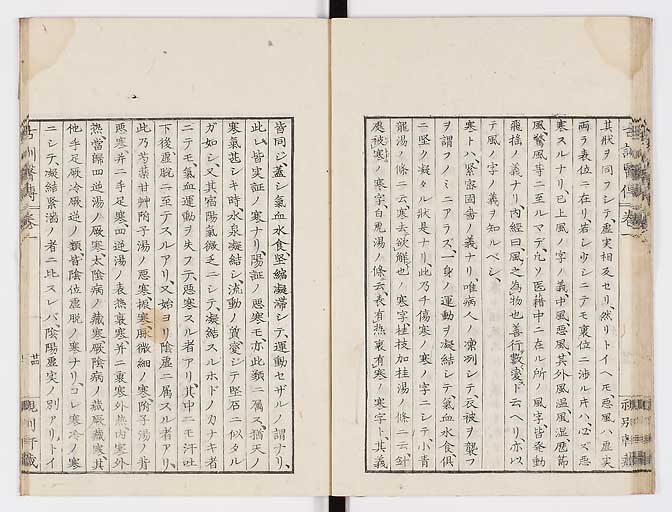 其狀ヲ同フシテ虚実相反セリ、然リトイヘモ、悪風ハ虚実
両ラ表位ニ在リ、若シ少シニテモ裏位ニ渉ルキハ、必ズ悪
寒スルナリ、已上風ノ字ノ義、中風悪風、其外風温風湿、
風驚風等ニ至ルマデ、凡ソ医籍中ニ在ル所ノ風字、皆発動
飛揚ノ義ナリ、内経曰、風之為物也善行数変ト云ヘリ、亦以
テ風ノ字ノ義ヲ知ルベシ、
寒トハ、緊密固嗇ノ義ナリ、唯病人ノ凛冽シテ、衣被ヲ襲フ
ヲ謂フノミニアラズ、一身ノ運動ヲ凝結シテ、気血水食俱
ニ堅ク凝タル狀是ナリ、此乃チ傷寒ノ寒ノ字ニシテ、小青
龍湯ノ條ニ云、寒去欲解也ノ寒字、桂枝加桂湯ノ條ニ云、針
処被寒ノ寒字、白虎湯ノ條ニ云、表有熱裏有寒ノ寒字ト、其義
皆同ジ、蓋シ氣血水食堅縮凝滞シテ、運動セザルノ謂ナリ、
此レ皆実証ノ寒ナリ、陽証ノ悪寒モ亦此類ニ属ス、猶天ノ
寒氣甚シキ時、水泉凝結シ、流動ノ質変ジテ堅石ニ似タル
ガ如シ、又其宿陽氣微乏ニシテ、凝結スルホドノカナキ者
ニテモ、氣血運動ヲ失フテ、悪寒スル者アリ、其中ニモ汗吐
下後虚脱ニ至テスルアリ、又始ヨリ陰虚ニ属スル者アリ、
此乃芍薬甘艸附子湯ノ悪寒、振寒脈微細ノ寒、附子湯ノ背
悪寒、并ニ手足寒、四逆湯ノ表熱裏寒、并ニ裏寒外熱、内寒外
熱、当歸四逆湯ノ厥寒、太陰病ノ蔵寒、厥陰病ノ蔵厥蔵寒、其
他手足厥冷厥逆ノ類、皆陰位虚脱ノ寒ナリ、コレ寒冷ノ寒
ニシテ、凝結緊濇ノ者ニ比スレバ、陰陽虚実ノ別アリ、トイ